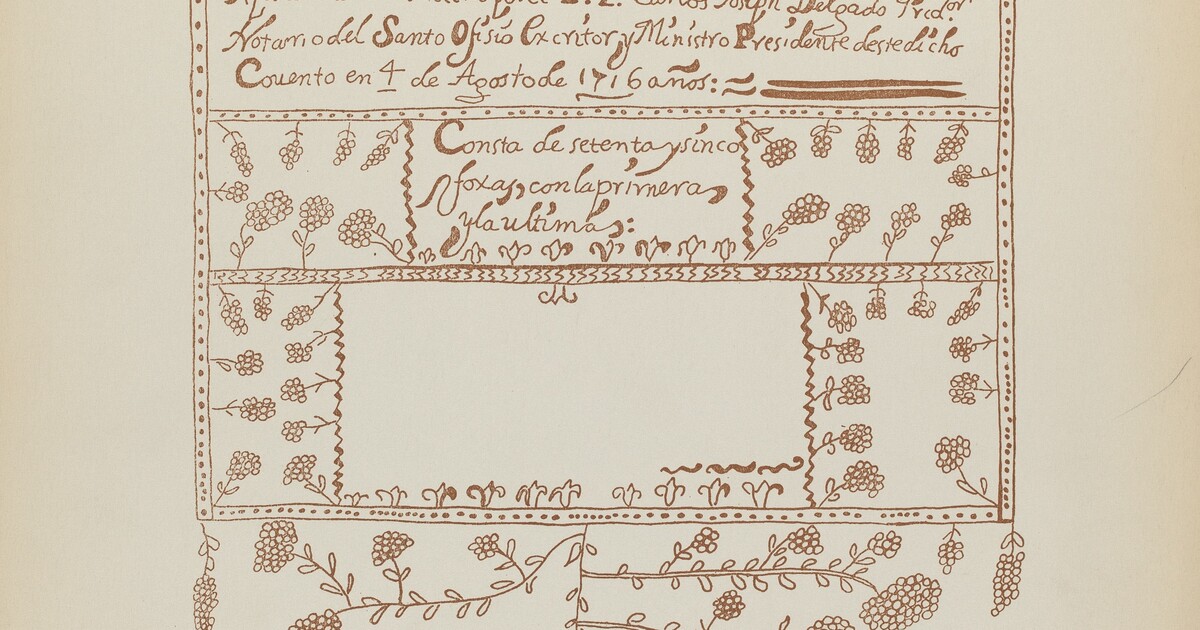 Carlos Joseph Delgado Pred.or
Notario del Santo Ofisio Excritor y Ministro Presidente deste dicho
Couento en 4 de Agosto de 1716 años:
Consta de setenta y sinco
foxas, con la primera,
y la ultima,: